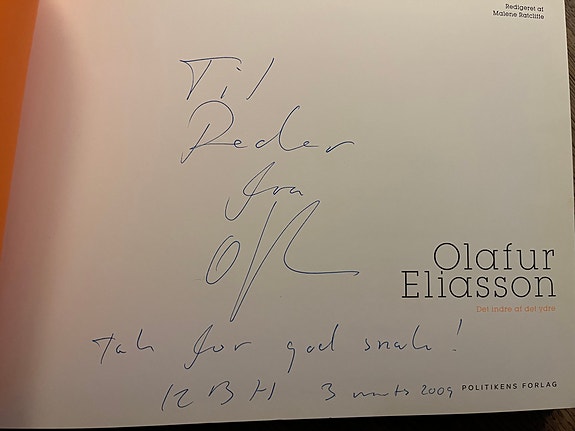 Redigeret af
Malene Ratcliffe
Til
Peder
fra
Olafur
Eliasson
Det indre af det ydre
Tak for god snak!
KBH 3 marts 2009
POLITIKENS FORLAG